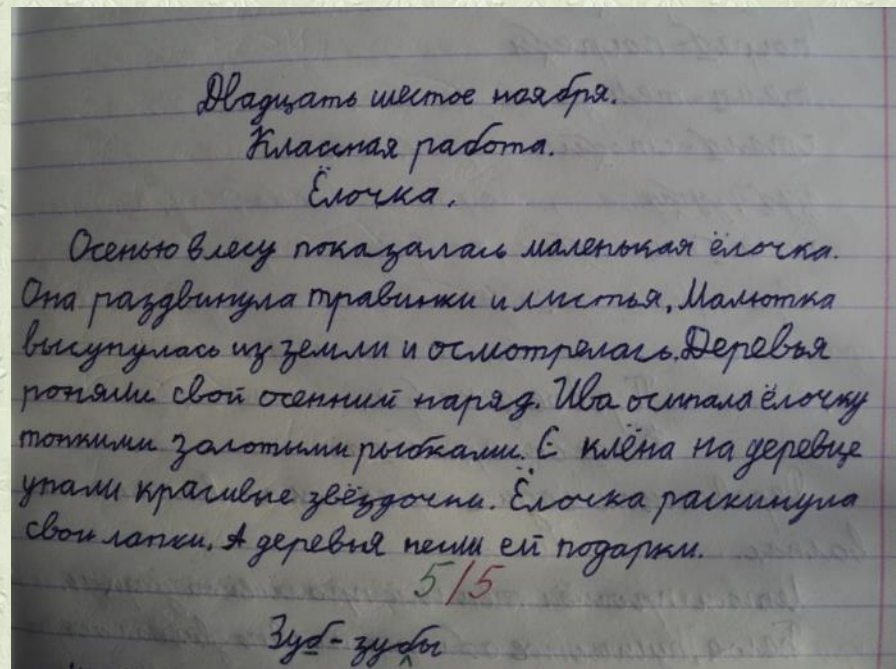 Двадцать шестое ноября.
Классная работа.
Ёлочка.
Осенью в лесу показалась маленькая ёлочка.
Она раздвинула травинки и листья. Малютка
высунулась из земли и осмотрелась. Деревья
роняли свой осенний наряд. Ива осыпала ёлочку
тонкими золотыми рыбками. С клёна на деревце
упали красивые звёздочки. Ёлочка раскинула
свои лапки. А деревья несли ей подарки.
5/5
Зуб - зубы